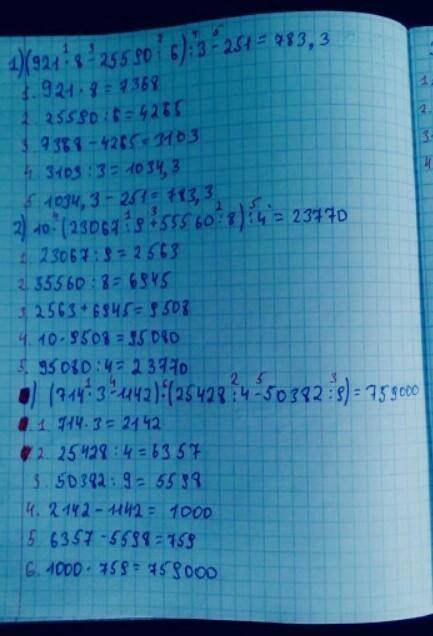 1) (921 · 8 - 25590 : 6) : 3 - 251 = 783,3
1. 921 · 8 = 7368
2. 25590 : 6 = 4265
3. 7368 - 4265 = 3103
4. 3103 : 3 = 1034,3
5. 1034,3 - 251 = 783,3
2) 10 · (23067 : 9 + 55560 : 8) : 4 = 23770
1. 23067 : 9 = 2563
2. 55560 : 8 = 6945
3. 2563 + 6945 = 9508
4. 10 · 9508 = 95080
5. 95080 : 4 = 23770
) (714 · 3 - 1142) · (25428 : 4 - 50382 : 9) = 759000
1. 714 · 3 = 2142
2. 25428 : 4 = 6357
3. 50382 : 9 = 5598
4. 2142 - 1142 = 1000
5 6357 - 5598 = 759
6. 1000 · 759 = 759000